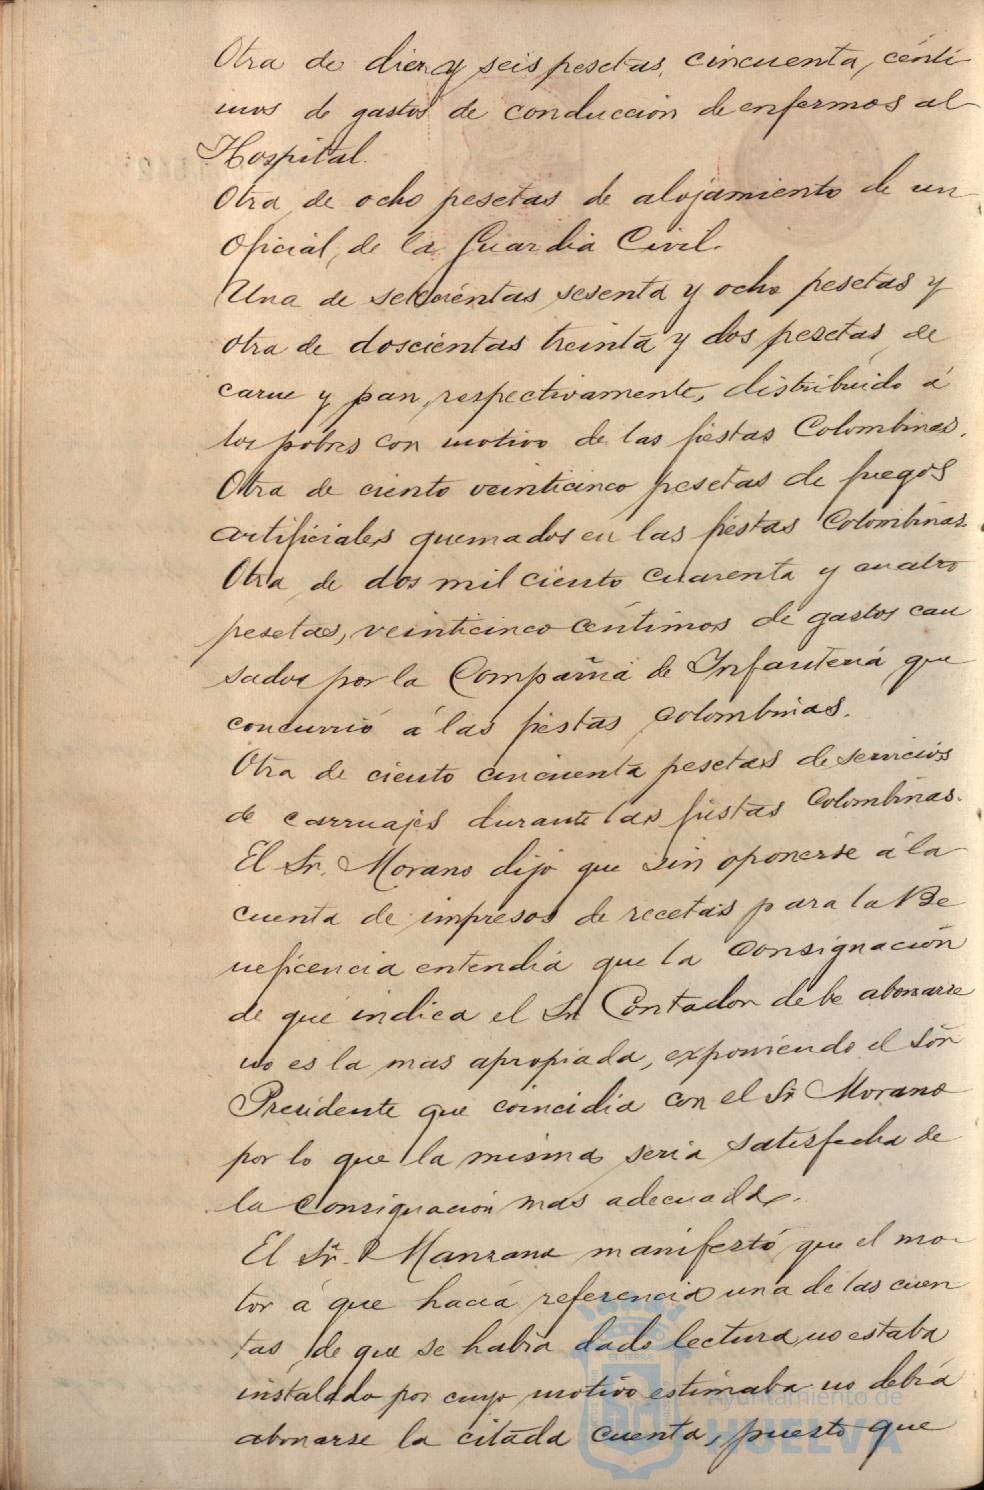 Otra de diez y seis pesetas, cincuenta, cénti
mos de gastos de conducción de enfermos al
Hospital.
Otra de ocho pesetas de alojamiento de un
Oficial, de la Guardia Civil.
Una de setecientas sesenta y ocho pesetas y
otra de doscientas treinta y dos pesetas, de
carne y pan, respectivamente, distribuido á
los pobres con motivo de las fiestas Colombinas.
Otra de ciento veinticinco pesetas de fuegos
artificiales quemados en las fiestas Colombinas.
Otra de dos mil ciento cuarenta y cuatro
pesetas, veinticinco céntimos de gastos cau
sados por la Compañia de Infanteria que
concurrió á las fiestas Colombinas.
Otra de ciento cincuenta pesetas de servicios
de carruajes durante las fiestas Colombinas.
El Sr. Morano dijo que sin oponerse á la
cuenta de impresos de recetas para la Be
neficencia entendia que la consignación
de que indica el Sr Contador debe abonarse
no es la mas apropiada, exponiendo el Sõr
Presidente que coincidia con el Sr Morano
por lo que la misma seria satisfecha de
la consignación mas adecuada.
El Sr. Manzano manifestó que el mo-
tor á que hacia referencia una de las cuen
tas, de que se habia dado lectura no estaba
instalado por cuyo motivo estimaba no debia
abonarse la citada cuenta, puesto que
Ayuntamiento de
HUELVA